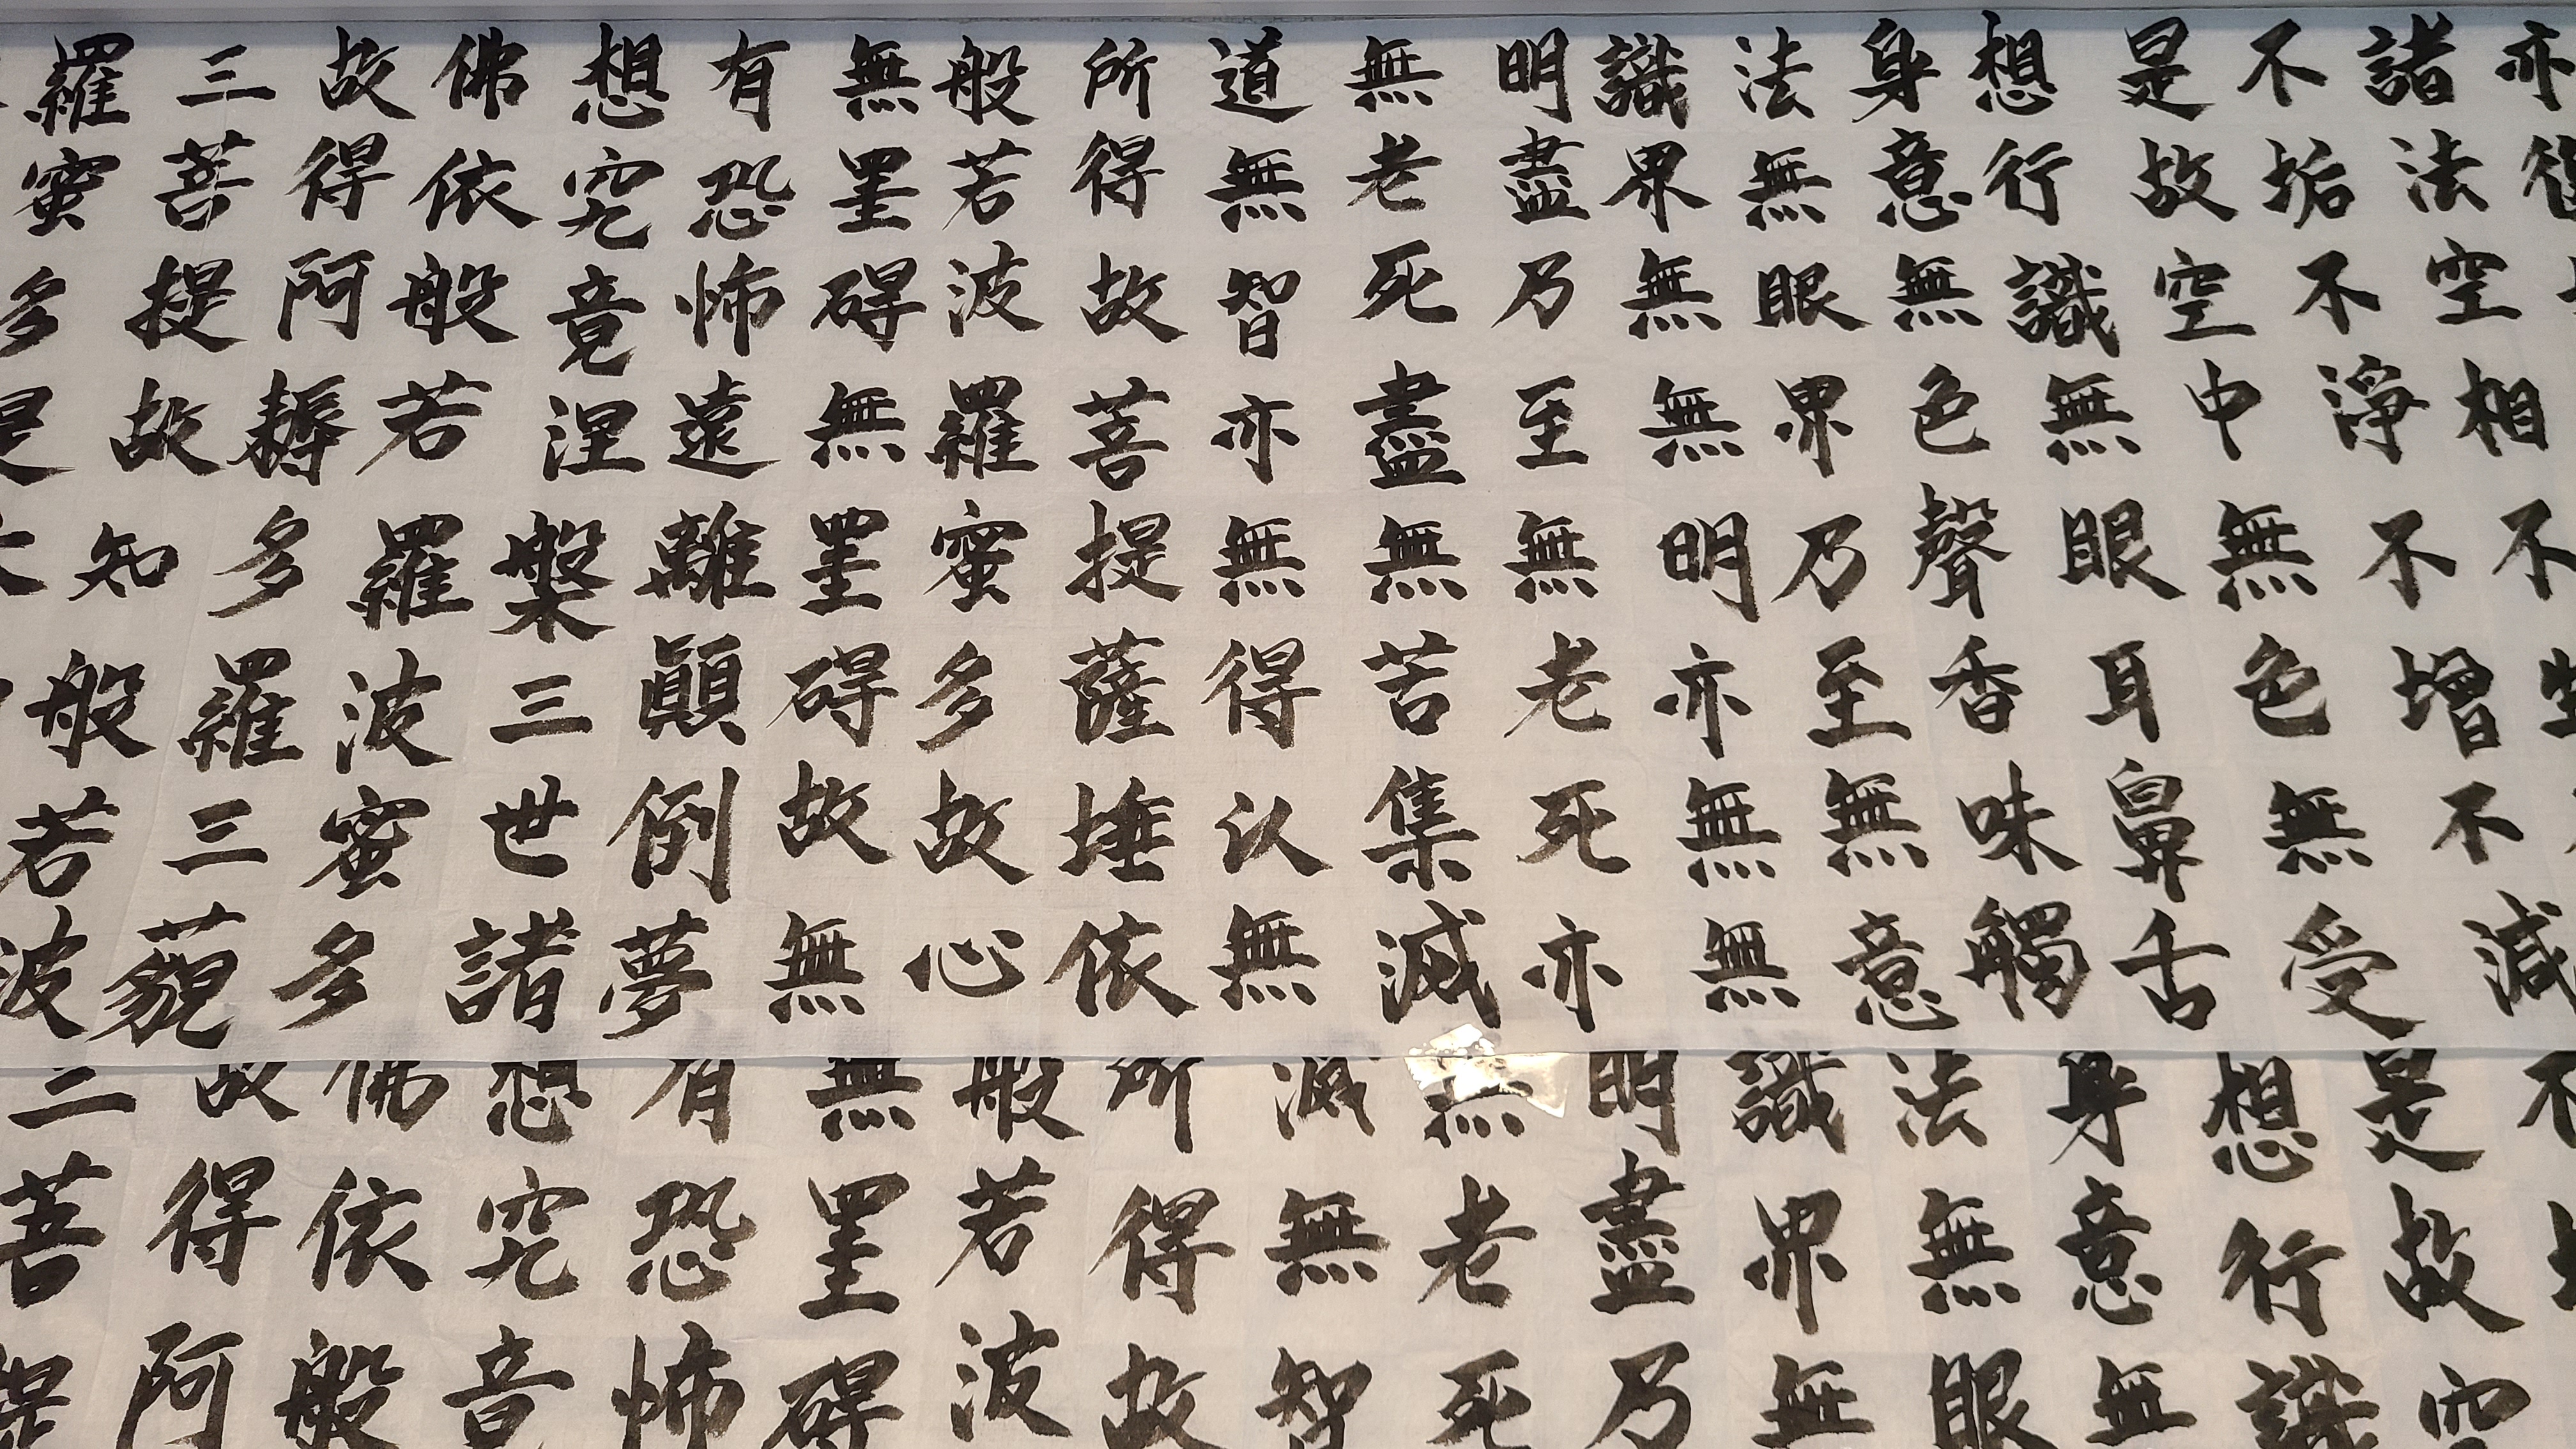 亦復
諸法空相不生
不垢不淨不增不減
是故空中無色無受
想行識無眼耳鼻舌
身意無色聲香味觸
法無眼界乃至無意
識界無無明亦無無
明盡乃至無老死亦
無老死盡無苦集滅
道無智亦無得以無
所得故菩提薩埵依
般若波羅蜜多故心
無罣碍無罣碍故無
有恐怖遠離顛倒夢
想究竟涅槃三世諸
佛依般若波羅蜜多
故得阿耨多羅三藐
三菩提故知般若波
羅蜜多是大
不
是故空
想行識
身意無
法無眼
識界無
明盡乃
無老死
滅無智
所得故
般若波
無罣碍
有恐怖
想究竟
佛依般
故得阿
三菩提